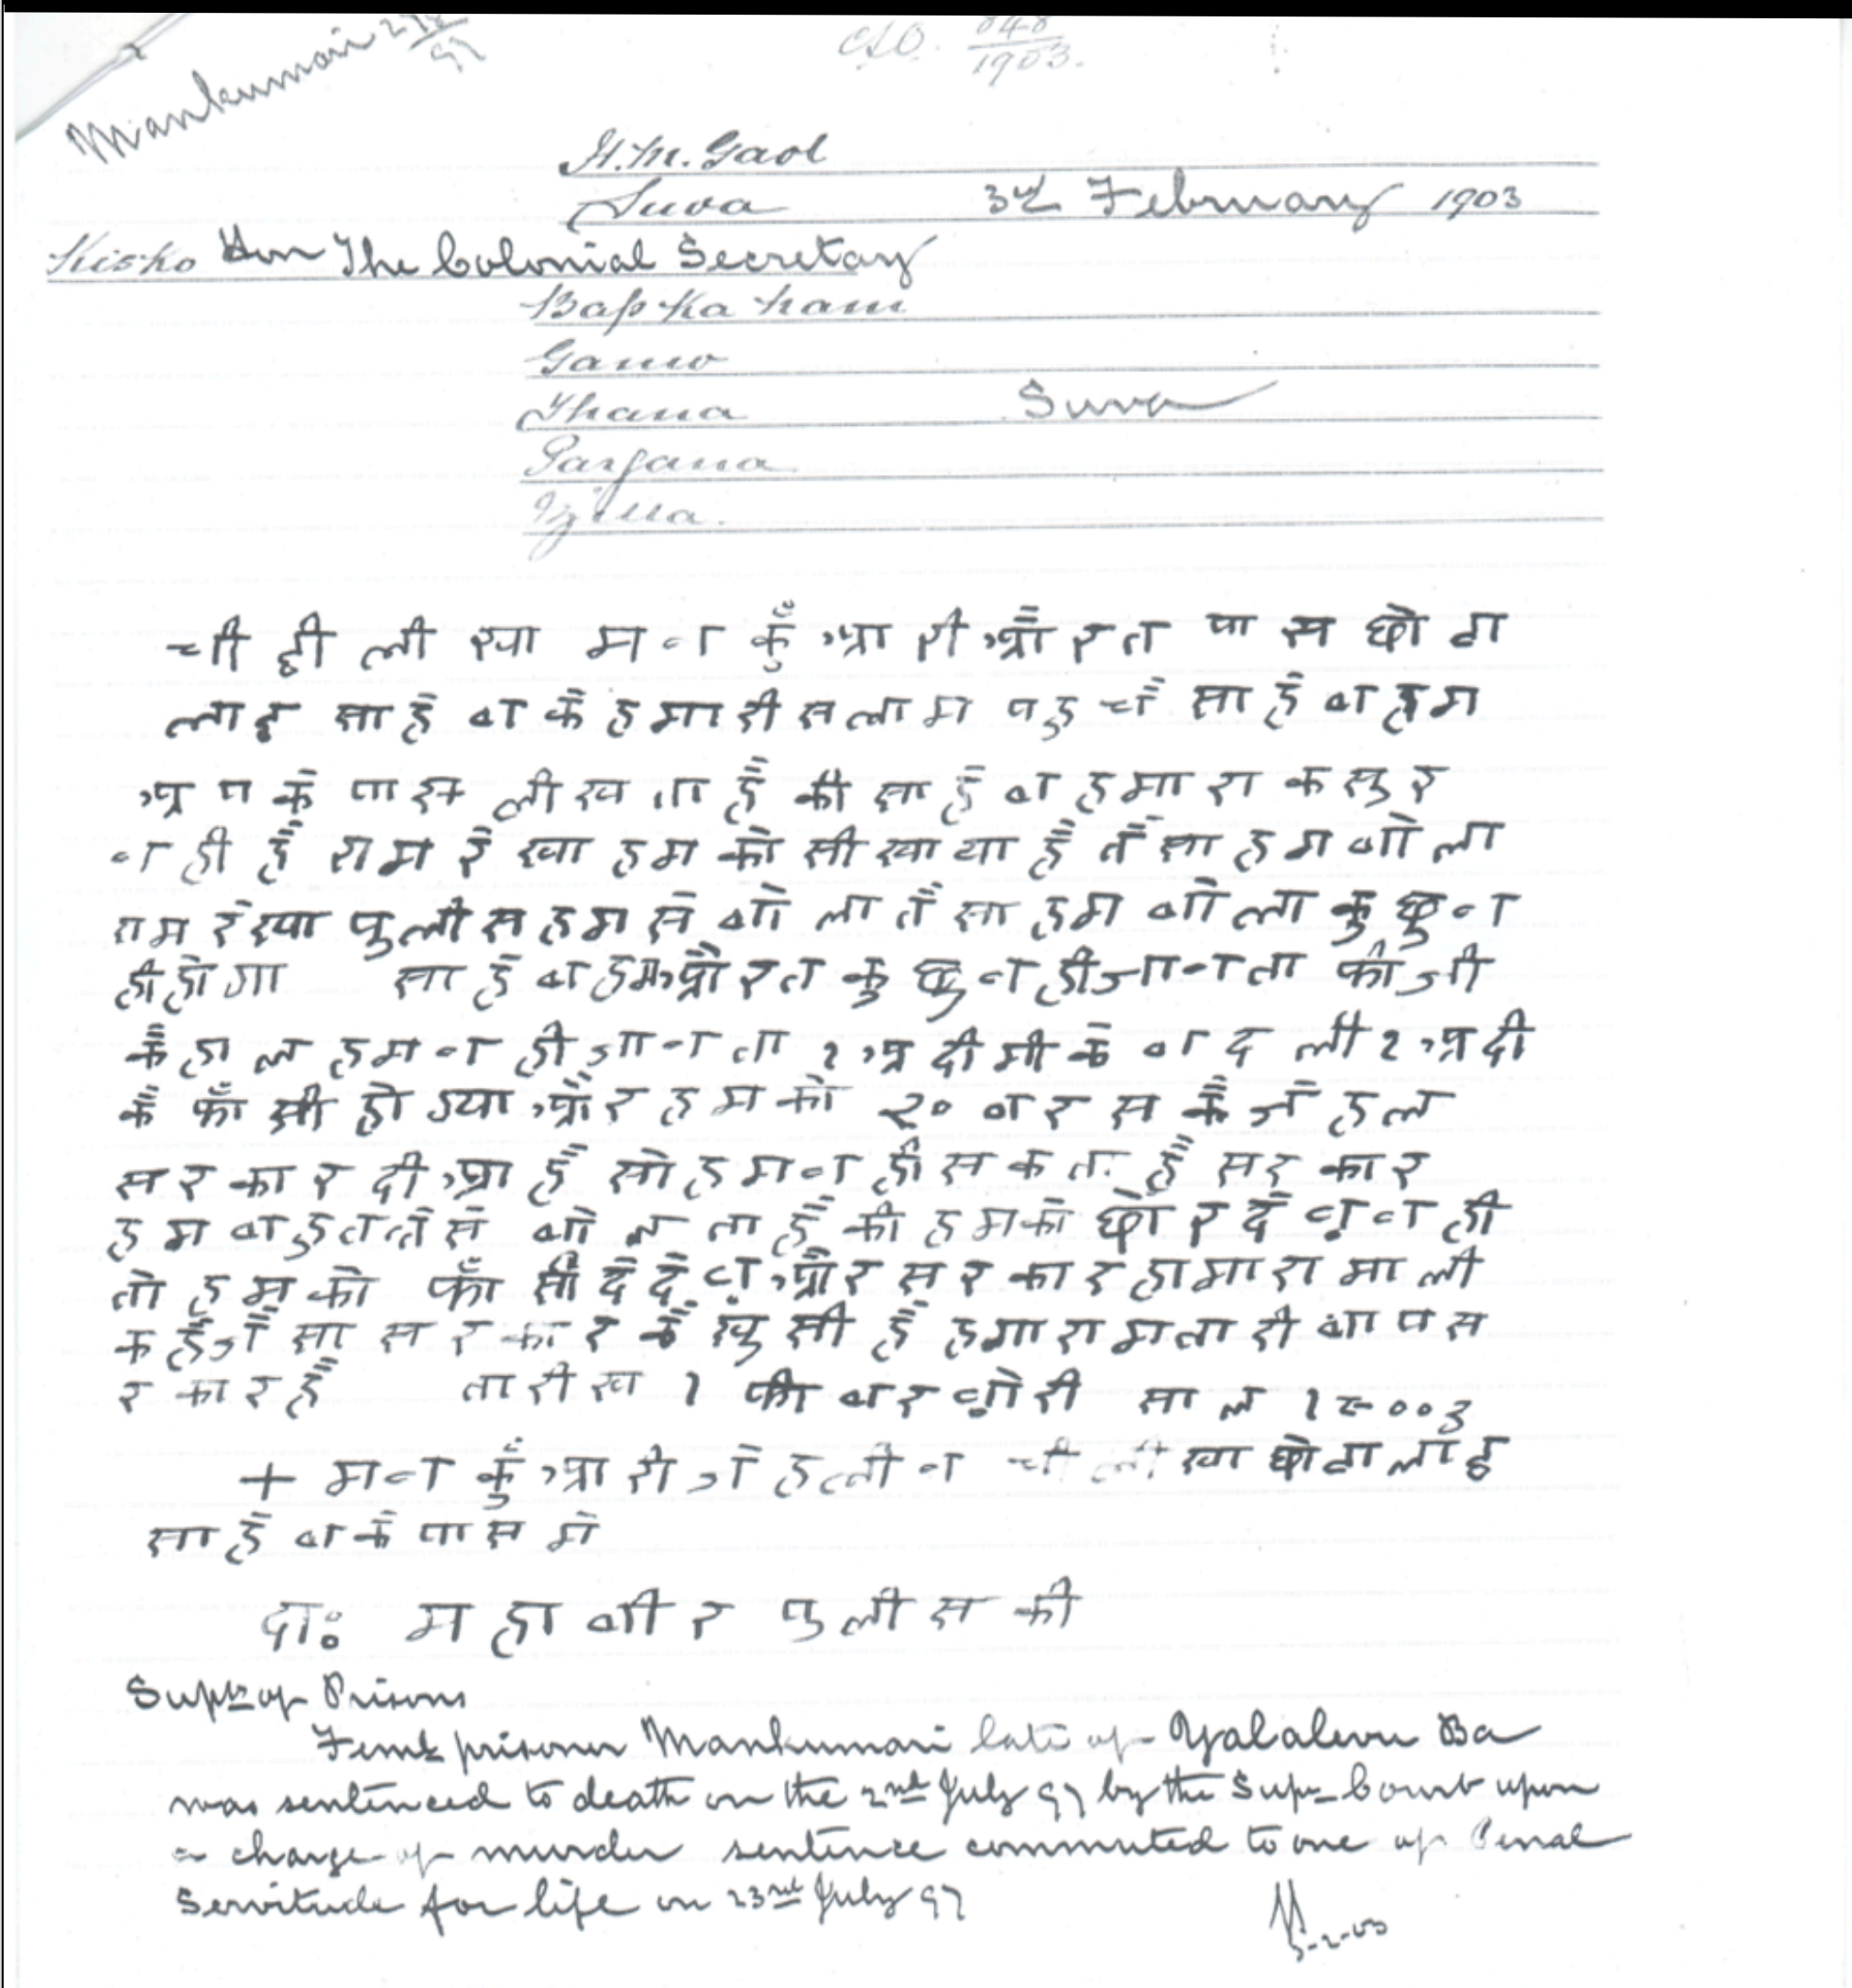 Mankumari 2/7/97
CSO. 848/1903.
H.M. Gaol
Suva 3rd February 1903
Kisko Hon The Colonial Secretary
Bap ka nam
Gamo
Thana Suva
Pargana
Zilla.
ची ठी ली खा म न कुँ आ री औ र त पा स छो टा
ला ट सा हे ब के ह मा री स ला म प हु चे सा हे ब ह म
आ प के पा स ली ख ता है की सा हे ब ह मा रा क सु र
न ही है रा म रे खा ह म को सी खा या है तै सा ह म बो ला
रा म रे खा पु ली स ह म से बो ला तै सा ह म बो ला कु छु न
ही हो गा सा हे ब ह म औ र त कु छु न ही जा न ता फी जी
कै हा ल ह म न ही जा न ता १ आ दी मी के ब द ली २ आ दी
कै फाँ सी हो ग्या औ र ह म को २० ब र स कै जे ह ल
स र का र दी आ है सो ह म न ही स क ता है स र का र
ह म ब हु त ते से बो ल ता है की ह म को छो र दे व न ही
तो ह म को फाँ सी दे दे व औ र स र का र हा मा रा मा ली
क है जै सा स र का र कै खु सी है ह मा रा म ता री बा प स
र का र है ता री ख १ फी ब र वो री सा ल १९००३
+ म न कुँ आ री जे ह ली न ची ली खा छो टा ला ट
सा हे ब के पा स मे
दा: म हा बी र पु ली स की
Supt of Prisons
Female prisoner Mankumari late of Yalalevu Ba
was sentenced to death on the 2nd July 97 by the Supr Court upon
a charge of murder sentence commuted to one of Penal
Servitude for life on 23rd July 97
5-2-03